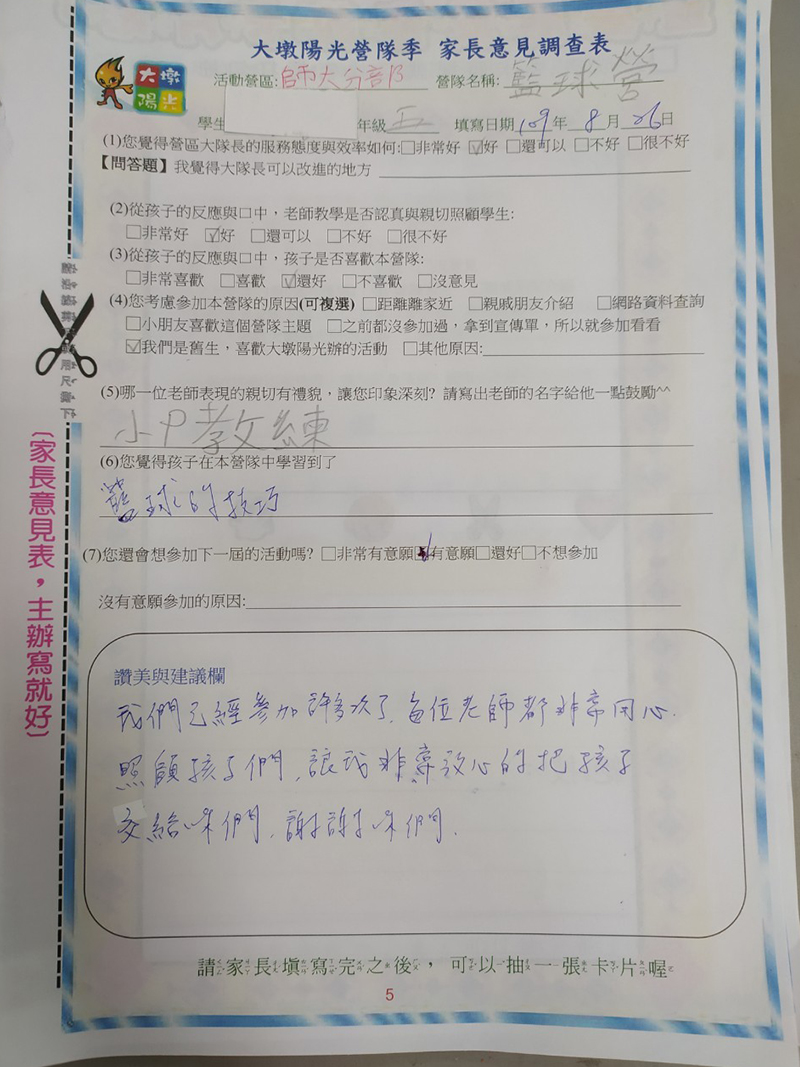 大墩陽光營隊季 家長意見調查表
大墩
陽光
活動營區:師大分部 營隊名稱:籃球營
學生 年級 五 填寫日期 109 年 8 月 26 日
(1)您覺得營區大隊長的服務態度與效率如何:□非常好 ☑好 □還可以 □不好 □很不好
【問答題】我覺得大隊長可以改進的地方
(2)從孩子的反應與口中，老師教學是否認真與親切照顧學生:
□非常好 ☑好 □還可以 □不好 □很不好
(3)從孩子的反應與口中，孩子是否喜歡本營隊:
□非常喜歡 □喜歡 ☑還好 □不喜歡 □沒意見
(4)您考慮參加本營隊的原因(可複選) □距離離家近 □親戚朋友介紹 □網路資料查詢
□小朋友喜歡這個營隊主題 □之前都沒參加過，拿到宣傳單，所以就參加看看
☑我們是舊生，喜歡大墩陽光辦的活動 □其他原因:
(5)哪一位老師表現的親切有禮貌，讓您印象深刻? 請寫出老師的名字給他一點鼓勵^^
小P教練
(6)您覺得孩子在本營隊中學習到了
籃球的技巧
(7)您還會想參加下一屆的活動嗎? □非常有意願☑有意願□還好□不想參加
沒有意願參加的原因:
讚美與建議欄
我們已經參加許多次了，每位老師都非常用心.
照顧孩子們，讓我非常放心的把孩子
交給你們，謝謝你們.
請家長填寫完之後，可以抽一張卡片喔
5
(家長意見表，主辦寫就好)